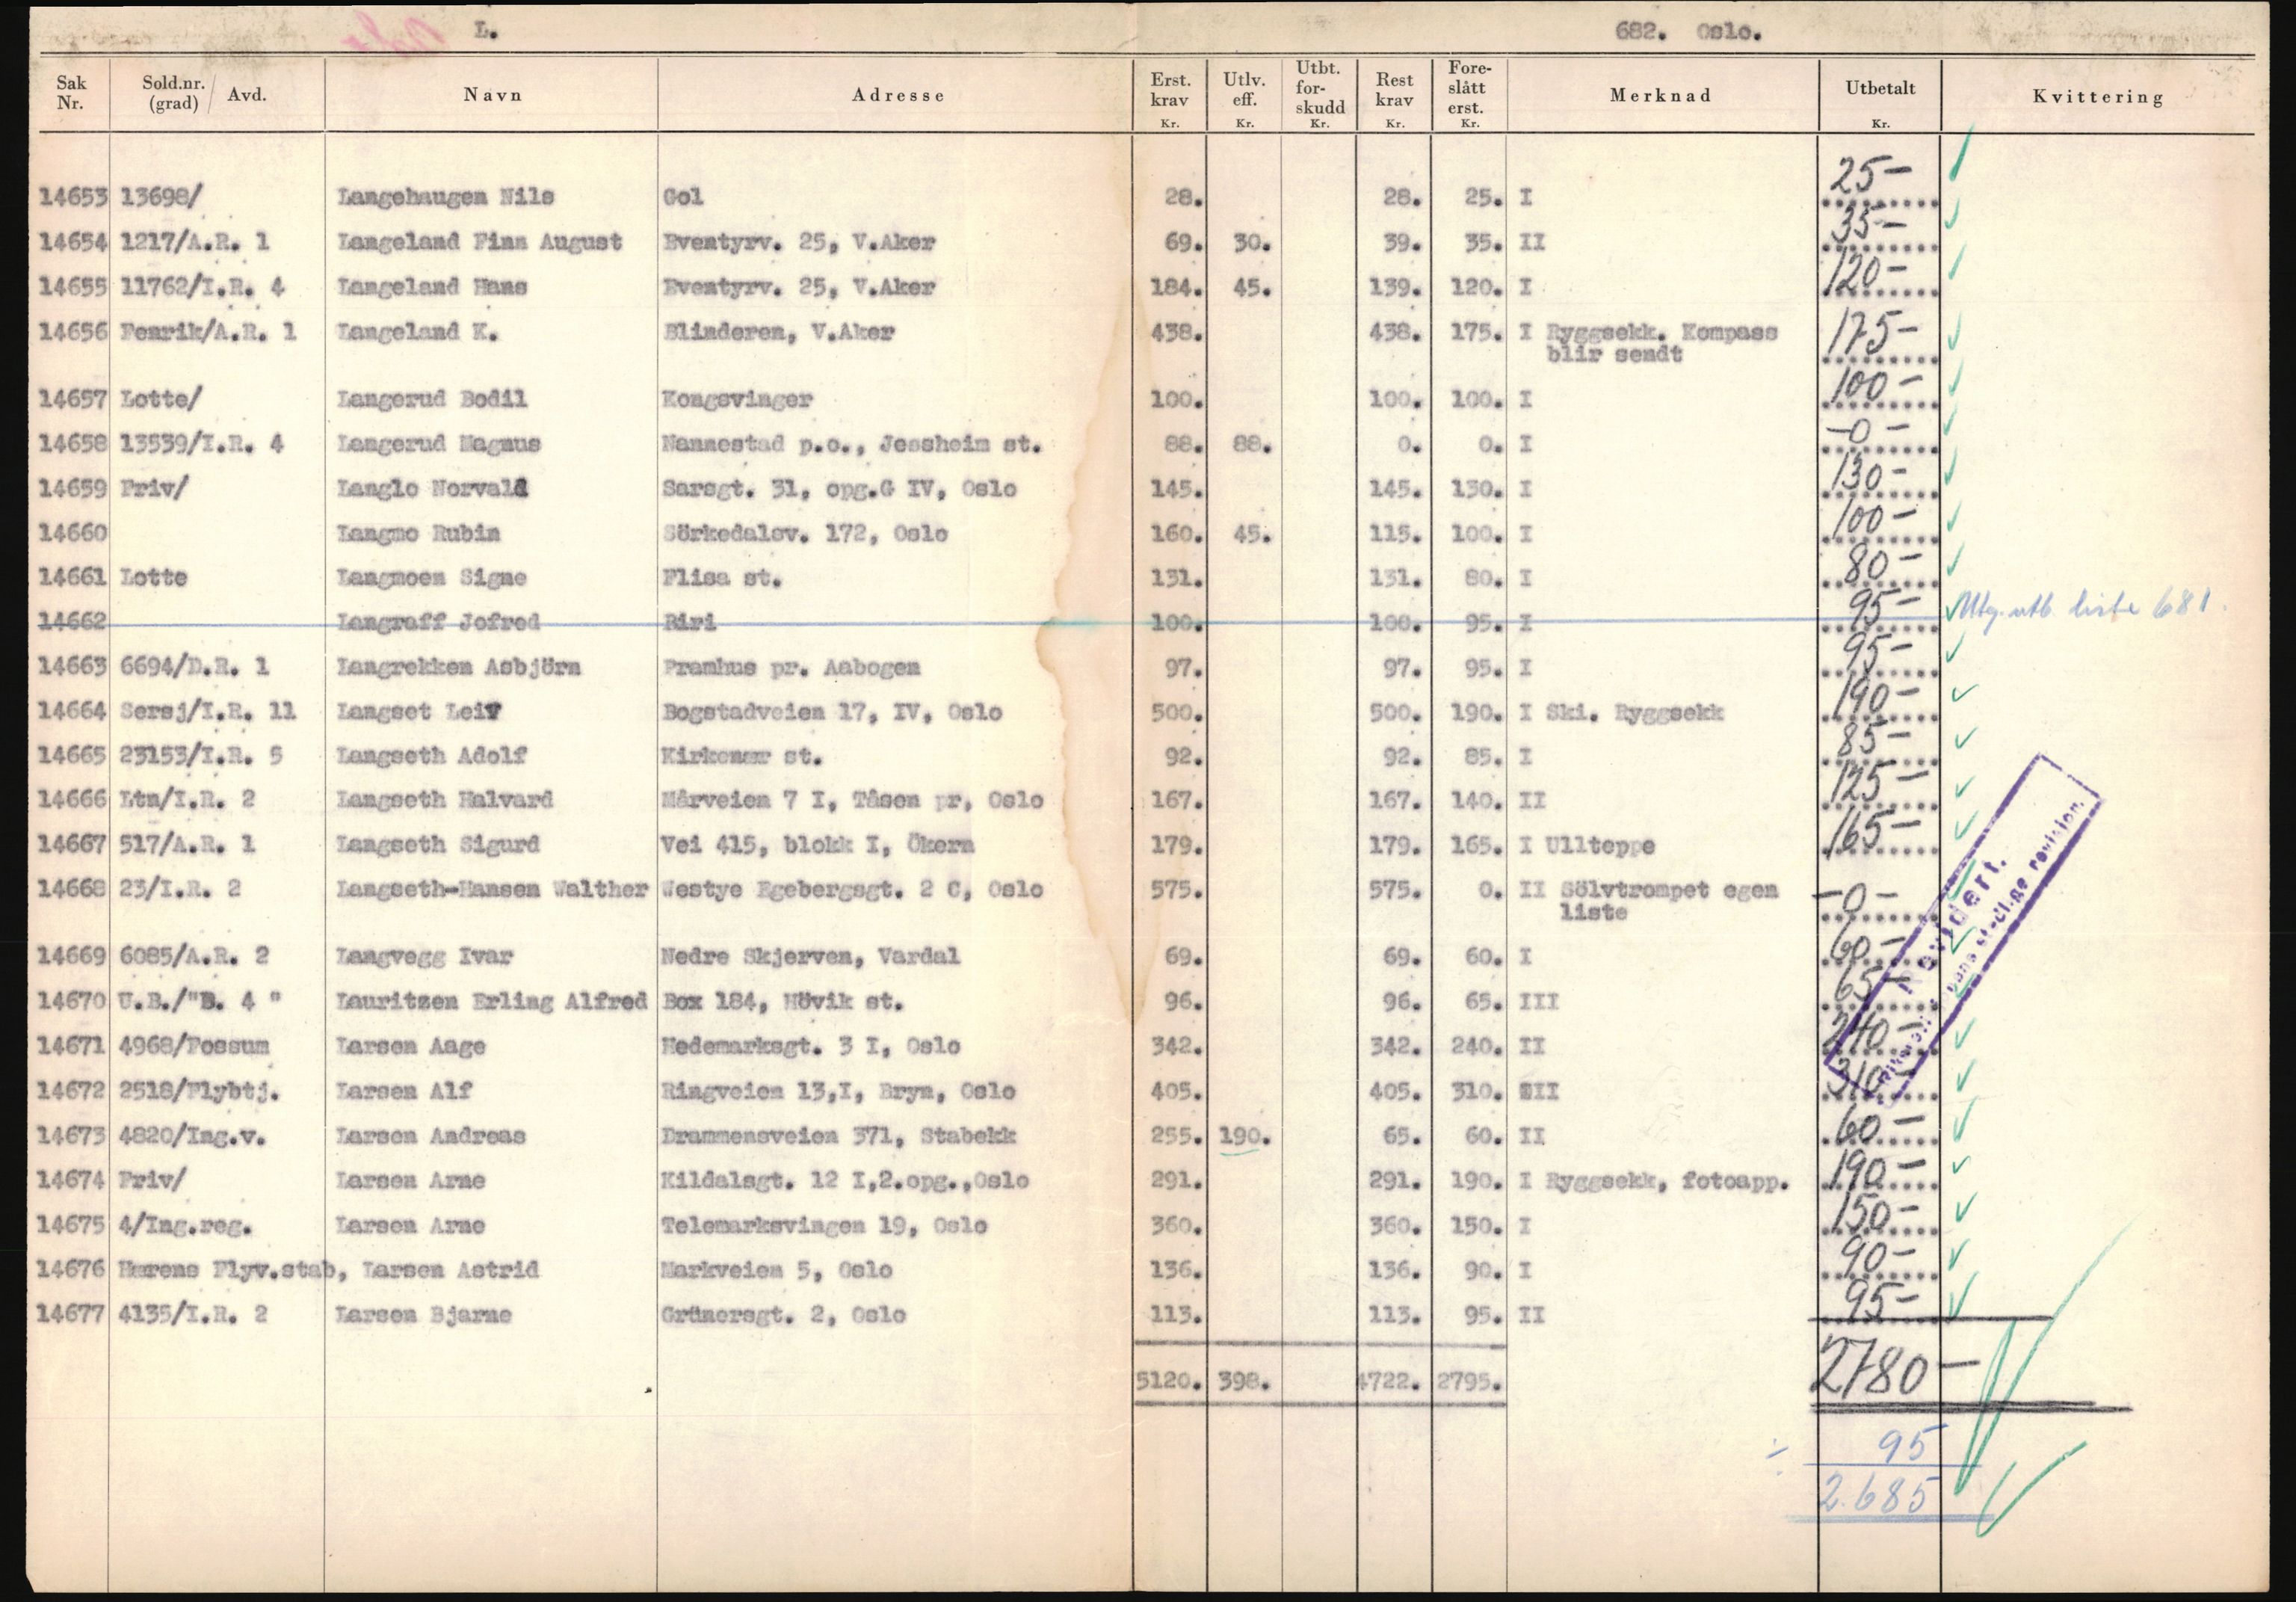 L. 682. Oslo.
Sak Nr. Sold.nr. (grad) / Avd. Navn Adresse Erst. krav Kr. Utlv. eff. Kr. Utbt. for- skudd Kr. Rest krav Kr. Fore- slått erst. Kr. Merknad Utbetalt Kr. Kvittering
14653 13698/ Langehaugen Nils Gol 28. 28. 25. I 25-
14654 1217/A.R. 1 Langeland Finn August Eventyrv. 25, V.Aker 69. 30. 39. 35. II 35-
14655 11762/I.R. 4 Langeland Hans Eventyrv. 25, V.Aker 184. 45. 139. 120. I 120-
14656 Fenrik/A.R. 1 Langeland K. Blinderen, V.Aker 438. 438. 175. I Ryggsekk. Kompass 175-
blir sendt
14657 Lotte/ Langerud Bodil Kongsvinger 100. 100. 100. I 100-
14658 13539/I.R. 4 Langerud Magnus Nannestad p.o., Jessheim st. 88. 88. 0. 0. I -0-
14659 Priv/ Langlo Norvald Sarsgt. 31, opg.G IV, Oslo 145. 145. 130. I 130-
14660 Langmo Rubin Sörkedalsv. 172, Oslo 160. 45. 115. 100. I 100-
14661 Lotte Langmoen Signe Flisa st. 131. 131. 80. I 80-
14662 Langraff Jofred Biri 100. 100. 95. I 95- utb. liste 681.
14663 6694/D.R. 1 Langrekken Asbjörn Framhus pr. Aabogen 97. 97. 95. I 95-
14664 Sersj/I.R. 11 Langset Leif Bogstadveien 17, IV, Oslo 500. 500. 190. I Ski. Ryggsekk 190-
14665 23153/I.R. 5 Langseth Adolf Kirkenær st. 92. 92. 85. I 85-
14666 Ltn/I.R. 2 Langseth Halvard Mårveien 7 I, Tåsen pr, Oslo 167. 167. 140. II 125-
14667 517/A.R. 1 Langseth Sigurd Vei 415, blokk I, Ökern 179. 179. 165. I Ullteppe 165-
14668 23/I.R. 2 Langseth-Hansen Walther Westye Egebergsgt. 2 C, Oslo 575. 575. 0. II Sölvtrompet egen -0-
liste
14669 6085/A.R. 2 Langvegg Ivar Nedre Skjerven, Vardal 69. 69. 60. I 60-
14670 U.B./"B. 4 " Lauritzen Erling Alfred Box 184, Hövik st. 96. 96. 65. III 65-
14671 4968/Fossum Larsen Aage Hedemarksgt. 3 I, Oslo 342. 342. 240. II 240-
14672 2518/Flybtj. Larsen Alf Ringveien 13,I, Bryn, Oslo 405. 405. 310. III 310-
14673 4820/Ing.v. Larsen Andreas Drammensveien 371, Stabekk 255. 190. 65. 60. II 60-
14674 Priv/ Larsen Arne Kildalsgt. 12 I,2.opg.,Oslo 291. 291. 190. I Ryggsekk, fotoapp. 190-
14675 4/Ing.reg. Larsen Arne Telemarksvingen 19, Oslo 360. 360. 150. I 150-
14676 Hærens Flyv.stab, Larsen Astrid Markveien 5, Oslo 136. 136. 90. I 90-
14677 4135/I.R. 2 Larsen Bjarne Grünersgt. 2, Oslo 113. 113. 95. II 95-
5120. 398. 4722. 2795. 2780-
÷ 95
2.685
Revidert.
revision.